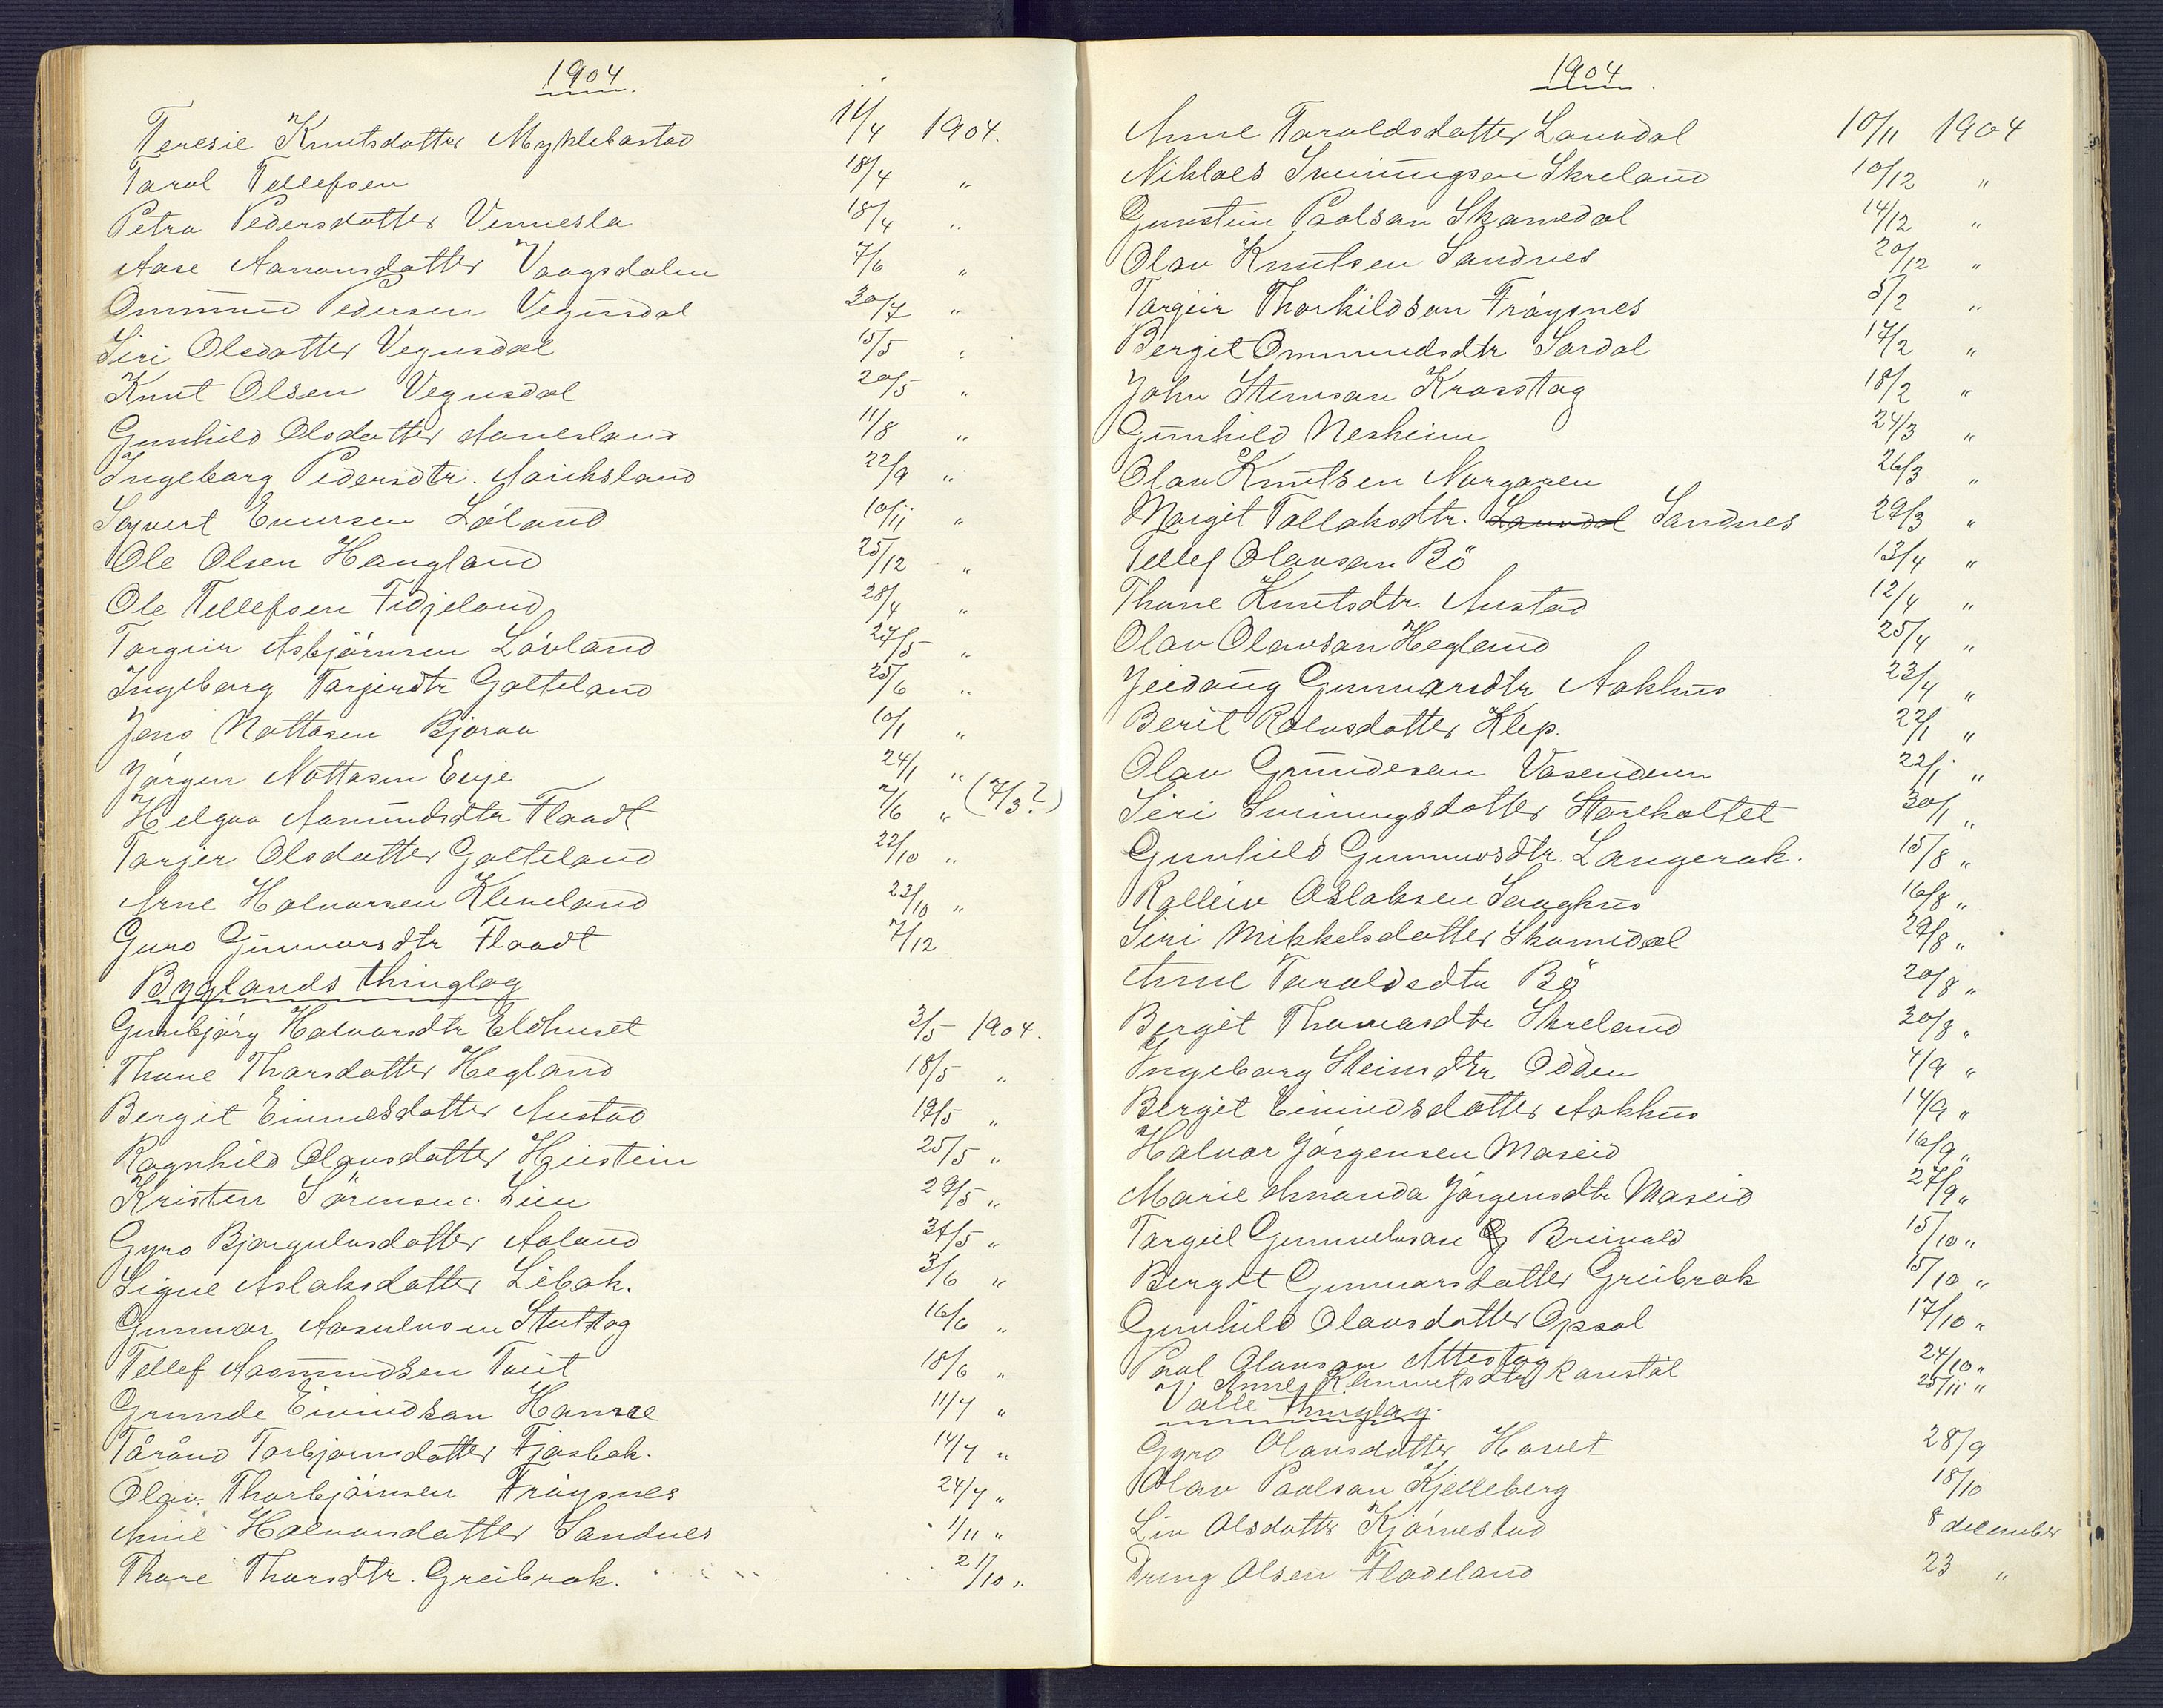 1904.
Teresie Knutsdatter Myklebostad 14/4 1904.
Tarol Tellefsen 18/4 "
Petra Pedersdatter Vennesla 18/4 "
Aase Aanonsdatter Vaagsdalen 7/6 "
Ommund Pedersen Vegusdal 30/7 "
Siri Olsdatter Vegusdal 15/5 "
Knut Olsen Vegusdal 20/5 "
Gunhild Olsdatter Aanesland 11/8 "
Ingeborg Pedersdtr. Aariksland 22/9 "
Syvert Evensen Løland 10/11 "
Ole Olsen Haugland 25/12 "
Ole Tellefsen Fidjeland 28/4 "
Torgeir Asbjörnsen Lövland 27/5 "
Ingeborg Tarjerdtr Galteland 25/6 "
Jens Nottosen Bjoraa 10/1 "
Jörgen Nottosen Evje 24/1 "
Helgaa Aamundsdtr Flaadt 7/6 " (7/3?)
Tarjer Olsdatter Galteland 22/10 "
Arne Halvorsen Kleveland 23/10 "
Guro Gunnarsdtr Flaadt 7/12
Byglands thinglag
Gunbjörg Halvorsdtr Eldhuset 3/5 1904.
Thone Thorsdatter Hegland 18/5 "
Bergit Eivindsdatter Austad 19/5 "
Ragnhild Olavsdatter Heistein 25/5 "
Kristen Sörensen Lien 29/5 "
Gyro Bjorgulvsdatter Aaland 31/5 "
Signe Aslaksdatter Libak. 3/6 "
Gunnar Aasulvsen Stuttog 16/6 "
Tellef Aasmundsen Tveit 18/6 "
Grunde Eivindson Hamre 11/7 "
Tårånd Torbjørnsdatter Fjosbak. 14/7 "
Olav Thorbjörnsen Fröysnes 24/7 "
Anne Halvorsdatter Sandnes 1/11 "
Thore Thorsdtr. Greibrok. 21/10 "
1904.
Anne Taraldsdatter Lauvdal 10/11 1904
Niklaes Sveinungsen Skreland 10/12 "
Gunstein Paalson Skamedal 14/12 "
Olav Knutsen Sandnes 20/12 "
Torgeir Thorkildson Fröysnes 5/2 "
Bergit Ommundsdtr Sordal 17/2 "
John Stenson Krosstog 18/2 "
Gunhild Nesheim 24/3 "
Olav Knutsen Norgaren 26/3 "
Margit Tallaksdtr. Lauvdal Sandnes 29/3 "
Tellef Olavsen Bö 13/4 "
Thone Knutsdtr. Austad 12/4 "
Olav Olavson Hegland 25/4 "
Jeidaug Gunnarsdtr Aakhus 23/4 "
Berit Rolvsdatter Klep. 22/1 "
Olav Grundeson Vasenden 22/1 "
Siri Sveinungsdatter Storeholtet 30/1 "
Gunhild Gunnarsdtr. Langerak. 15/8 "
Rolleiv Aslaksen Sanghus 16/8 "
Siri Mikkelsdatter Skomedal 29/8 "
Anne Taraldsdtr Bö 20/8 "
Bergit Thomasdtr Skreland 30/8 "
Ingeborg Steinsdtr Odden 4/9 "
Bergit Eivindsdatter Aakhus 14/9 "
Halvor Jörgensen Moseid 16/9 "
Marie Amanda Jörgensdtr Moseid 27/9 "
Torgiel Gunnulvson Breivold 15/10 "
Bergit Gunnarsdatter Greibrok 15/10 "
Gunhild Olavsdatter Opsal 17/10 "
Paal Olavson Attestog 24/10 "
Anne Kanstöl 25/11 "
Valle Thinglag.
Gyro Olavsdatter Hovet 28/9
Olav Paalson Kjelleberg 18/10
Liv Olsdatter Kjörnestad 8 december
Dreng Olsen Flodeland 23 "